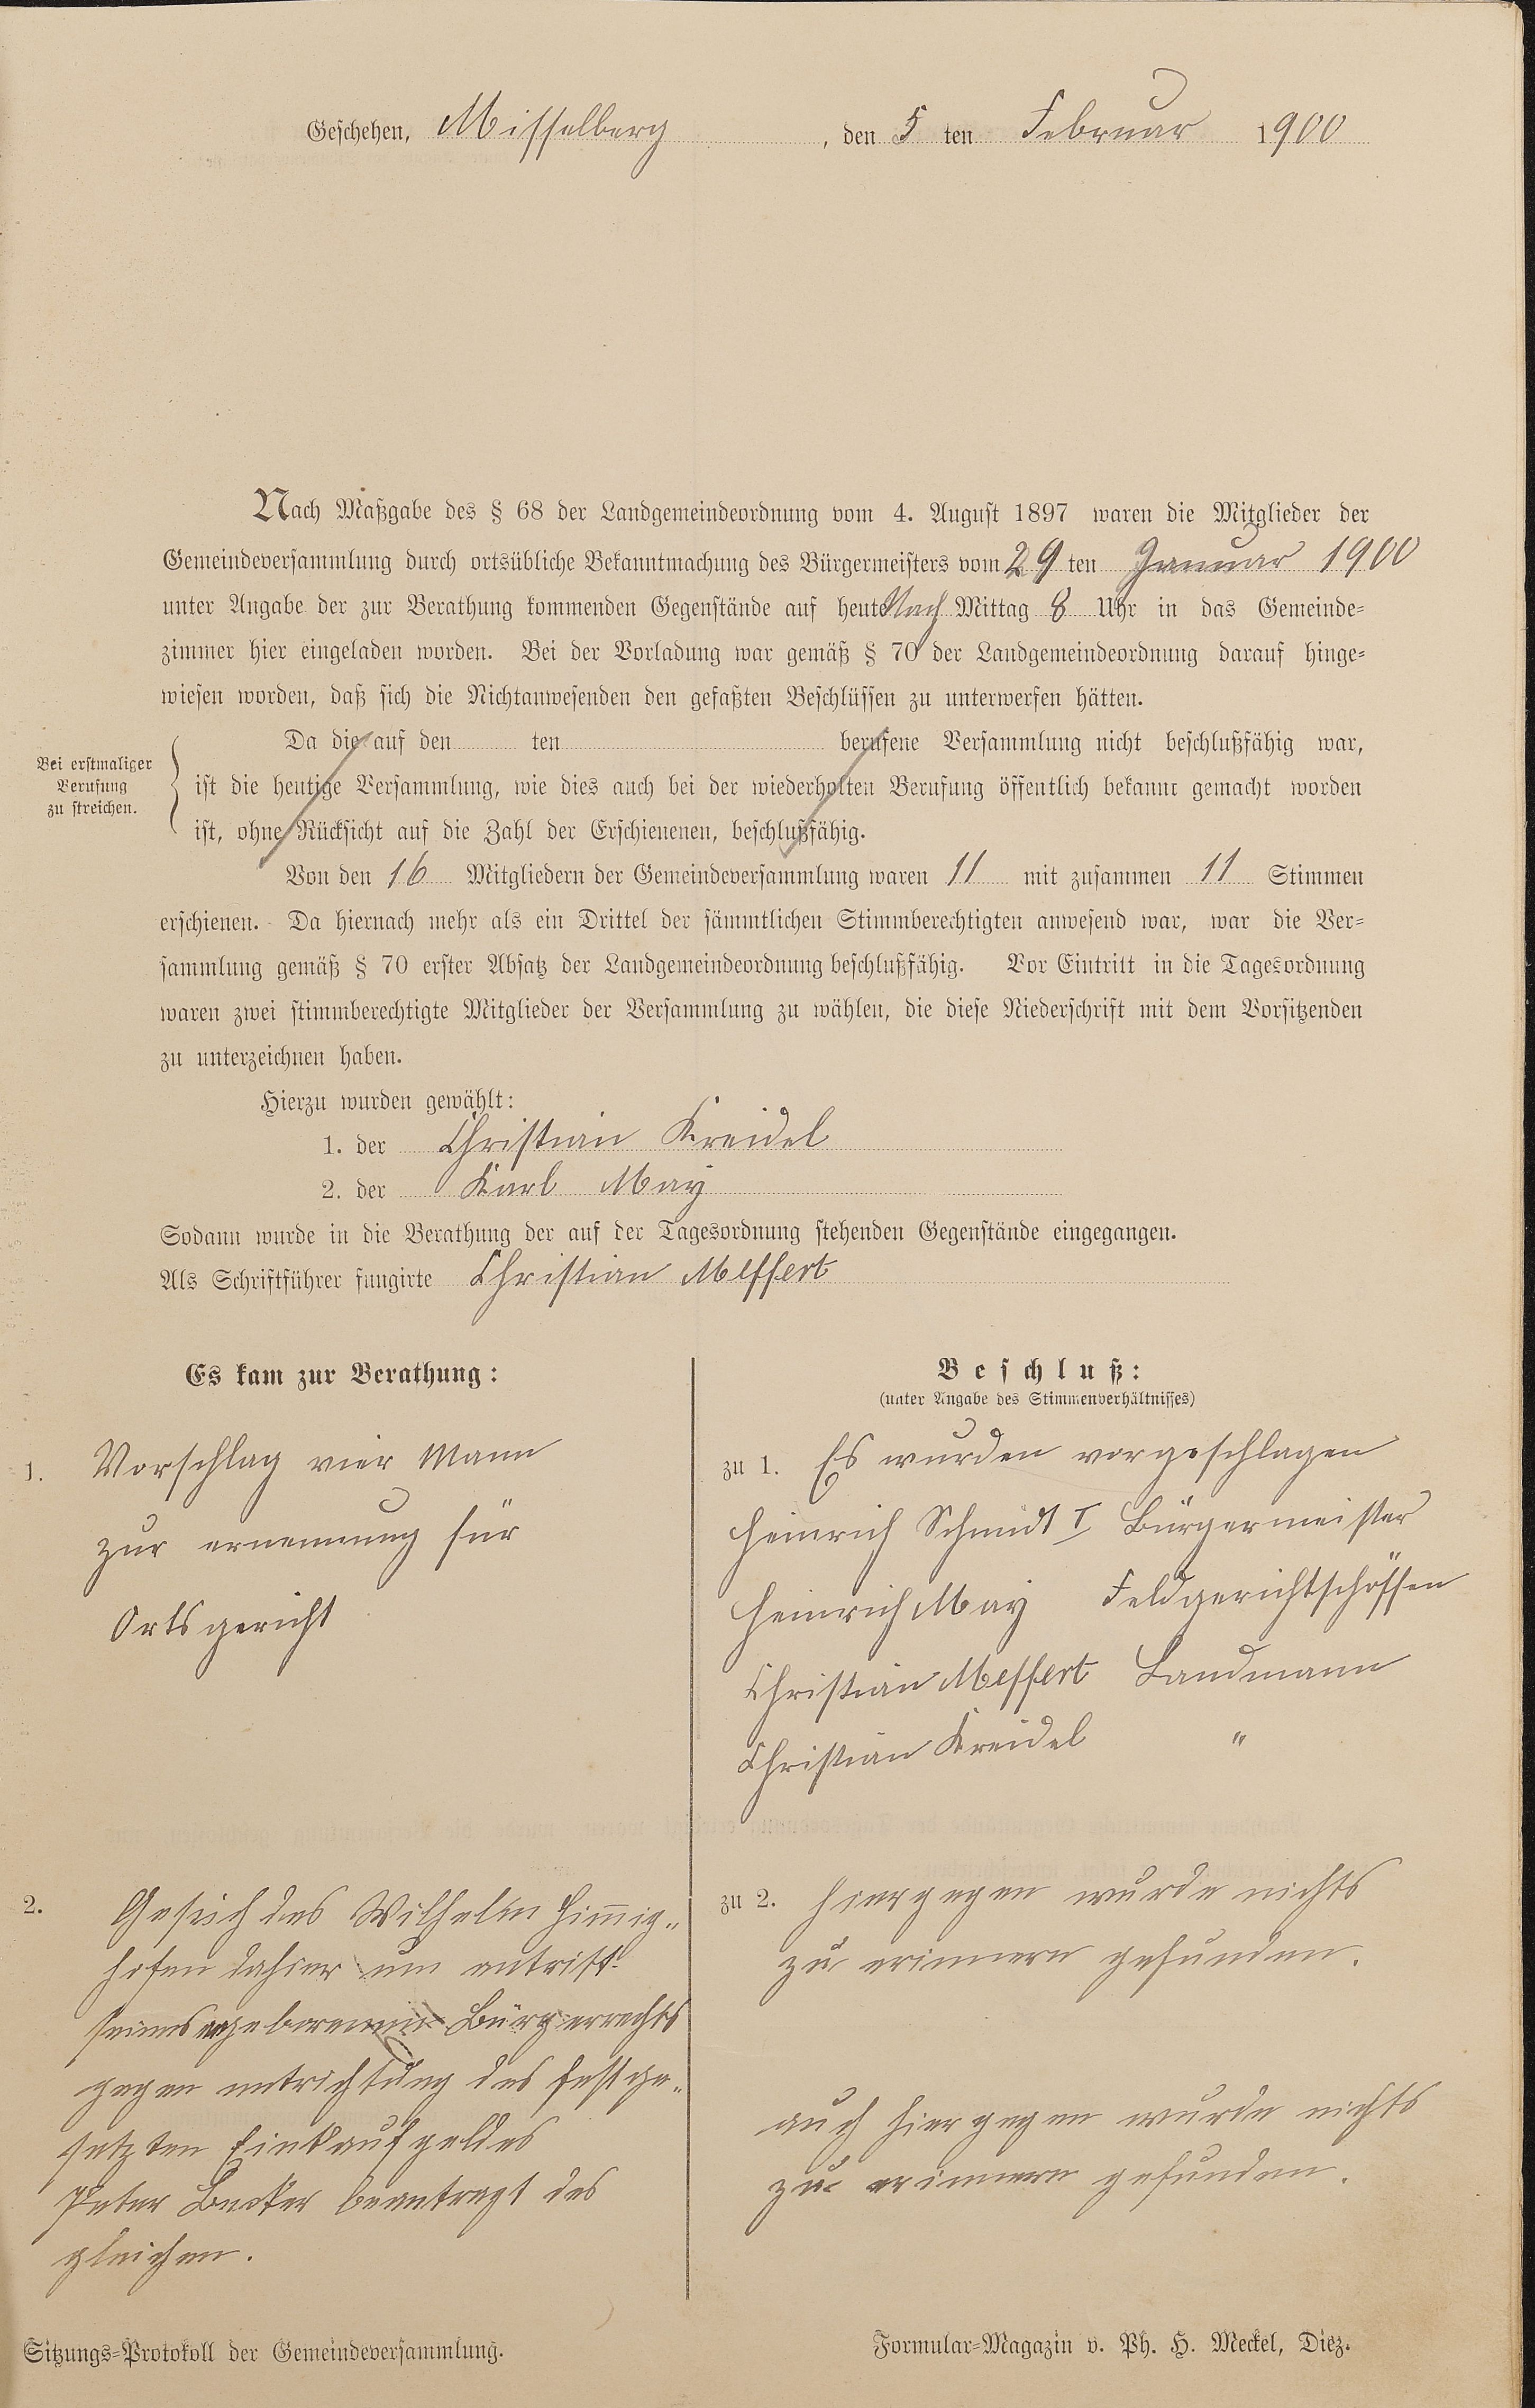 Geschehen, Misselberg, den 5 ten Februar 1900
Nach Maßgabe des § 68 der Landgemeindeordnung vom 4. August 1897 waren die Mitglieder der
Gemeindeversammlung durch ortsübliche Bekanntmachung des Bürgermeisters vom 29 ten Januar 1900
unter Angabe der zur Berathung kommenden Gegenstände auf heute Nach Mittag 8 Uhr in das Gemeinde-
zimmer hier eingeladen worden. Bei der Vorladung war gemäß § 70 der Landgemeindeordnung darauf hinge-
wiesen worden, daß sich die Nichtanwesenden den gefaßten Beschlüssen zu unterwerfen hätten.
Bei erstmaliger
Berufung
zu streichen.
Da die auf den ten berufene Versammlung nicht beschlußfähig war,
ist die heutige Versammlung, wie dies auch bei der wiederholten Berufung öffentlich bekannt gemacht worden
ist, ohne Rücksicht auf die Zahl der Erschienenen, beschlußfähig.
Von den 16 Mitgliedern der Gemeindeversammlung waren 11 mit zusammen 11 Stimmen
erschienen. Da hiernach mehr als ein Drittel der sämmtlichen Stimmberechtigten anwesend war, war die Ver-
sammlung gemäß § 70 erster Absatz der Landgemeindeordnung beschlußfähig. Vor Eintritt in die Tagesordnung
waren zwei stimmberechtigte Mitglieder der Versammlung zu wählen, die diese Niederschrift mit dem Vorsitzenden
zu unterzeichnen haben.
Hierzu wurden gewählt:
1. der Christian Kreidel
2. der Karl May
Sodann wurde in die Berathung der auf der Tagesordnung stehenden Gegenstände eingegangen.
Als Schriftführer fungirte Christian Meffert
Es kam zur Berathung:
1. Vorschlag vier Mann
zur ernennung für
Ortsgericht
2. Gesuch des Wilhelm Himmig„
hofen dahier um antritt
seines angeborenen Bürgerrechts
gegen entrichtung des festge„
setzten Einkaufgeldes
Peter Becker beantragt des
gleichen.
Beschluß:
(unter Angabe des Stimmenverhältnisses)
zu 1. Es wurden vorgeschlagen
Heinrich Schmidt I Bürgermeister
Heinrich May Feldgerichtschöffen
Christian Meffert Landmann
Christian Kreidel "
zu 2. Hiergegen wurde nichts
zu erinnern gefunden.
auch hiergegen wurde nichts
zu erinnern gefunden.
Sitzungs-Protokoll der Gemeindeversammlung.
Formular-Magazin v. Ph. H. Meckel, Diez.